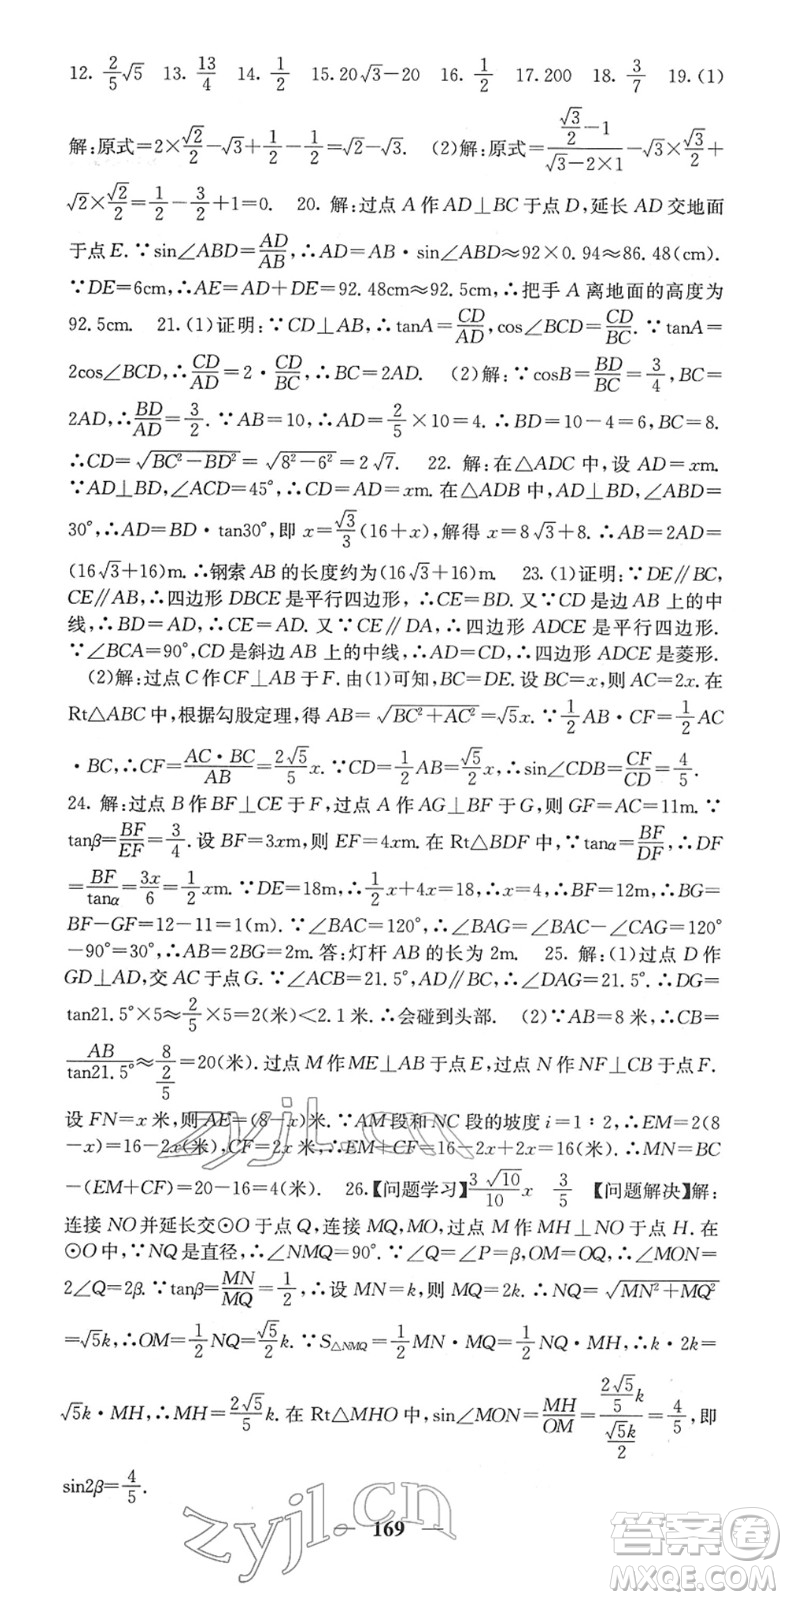 12. 2/5√5　13. 13/4　14. 1/2　15. 20√3−20　16. 1/2　17. 200　18. 3/7　19. (1)
解:原式=2×√2/2−√3+1/2−1/2=√2−√3.　(2)解:原式=(√3/2−1)/(√3−2×1)−√3×√3/2+
√2×√2/2=1/2−3/2+1=0.　20. 解:过点 A 作 AD⊥BC 于点 D,延长 AD 交地面
于点 E.∵sin∠ABD=AD/AB,∴AD=AB·sin∠ABD≈92×0.94≈86.48(cm).
∵DE=6cm,∴AE=AD+DE=92.48cm≈92.5cm,∴把手 A 离地面的高度为
92.5cm.　21. (1)证明:∵CD⊥AB,∴tanA=CD/AD,cos∠BCD=CD/BC.∵tanA=
2cos∠BCD,∴CD/AD=2·CD/BC,∴BC=2AD.　(2)解:∵cosB=BD/BC=3/4,BC=
2AD,∴BD/AD=3/2.∵AB=10,∴AD=2/5×10=4.∴BD=10−4=6,BC=8.
∴CD=√(BC²−BD²)=√(8²−6²)=2√7.　22. 解:在△ADC 中,设 AD=xm.
∵AD⊥BD,∠ACD=45°,∴CD=AD=xm.在△ADB 中,AD⊥BD,∠ABD=
30°,∴AD=BD·tan30°,即 x=√3/3(16+x),解得 x=8√3+8.∴AB=2AD=
(16√3+16)m.∴钢索 AB 的长度约为(16√3+16)m.　23. (1)证明:∵DE∥BC,
CE∥AB,∴四边形 DBCE 是平行四边形,∴CE=BD.又∵CD 是边 AB 上的中
线,∴BD=AD,∴CE=AD.又∵CE∥DA,∴四边形 ADCE 是平行四边形.
∵∠BCA=90°,CD 是斜边 AB 上的中线,∴AD=CD,∴四边形 ADCE 是菱形.
(2)解:过点 C 作 CF⊥AB 于 F.由(1)可知,BC=DE.设 BC=x,则 AC=2x.在
Rt△ABC 中,根据勾股定理,得 AB=√(BC²+AC²)=√5x.∵1/2AB·CF=1/2AC
·BC,∴CF=AC·BC/AB=2√5/5x.∵CD=1/2AB=√5/2x,∴sin∠CDB=CF/CD=4/5.
24. 解:过点 B 作 BF⊥CE 于 F,过点 A 作 AG⊥BF 于 G,则 GF=AC=11m.∵
tanβ=BF/EF=3/4.设 BF=3xm,则 EF=4xm.在 Rt△BDF 中,∵tanα=BF/DF,∴DF
=BF/tanα=3x/6=1/2xm.∵DE=18m,∴1/2x+4x=18,∴x=4,∴BF=12m,∴BG=
BF−GF=12−11=1(m).∵∠BAC=120°,∴∠BAG=∠BAC−∠CAG=120°
−90°=30°,∴AB=2BG=2m.答:灯杆 AB 的长为 2m.　25. 解:(1)过点 D 作
GD⊥AD,交 AC 于点 G.∵∠BCA=21.5°,AD∥BC,∴∠DAG=21.5°.∴DG=
tan21.5°×5≈2/5×5=2(米)<2.1 米.∴会碰到头部.　(2)∵AB=8 米,∴CB=
AB/tan21.5°≈8/(2/5)=20(米).过点 M 作 ME⊥AB 于点 E,过点 N 作 NF⊥CB 于点 F.
设 FN=x 米,则 AE=(8−x)米.∵AM 段和 NC 段的坡度 i=1∶2,∴EM=2(8
−x)=16−2x(米),CF=2x 米.∴EM+CF=16−2x+2x=16(米).∴MN=BC
−(EM+CF)=20−16=4(米).　26.【问题学习】3√10/10x　3/5　【问题解决】解:
连接 NO 并延长交⊙O 于点 Q,连接 MQ,MO,过点 M 作 MH⊥NO 于点 H.在
⊙O 中,∵NQ 是直径,∴∠NMQ=90°.∵∠Q=∠P=β,OM=OQ,∴∠MON=
2∠Q=2β.∵tanβ=MN/MQ=1/2,∴设 MN=k,则 MQ=2k.∴NQ=√(MN²+MQ²)
=√5k,∴OM=1/2NQ=√5/2k.∵S△NMQ=1/2MN·MQ=1/2NQ·MH,∴k·2k=
√5k·MH,∴MH=2√5/5k.在 Rt△MHO 中,sin∠MON=MH/OM=(2√5/5k)/(√5k/2)=4/5,即
sin2β=4/5.
— 169 —
zyjl.cn
zyjl.cn
答案圈
MXQE.COM